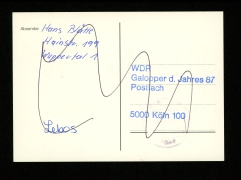 Absender:
Hans Blüm
Hainstr. 199
Wuppertal 1
Lebos
WDR
Galopper d. Jahres 87
Postfach
5000 Köln 100